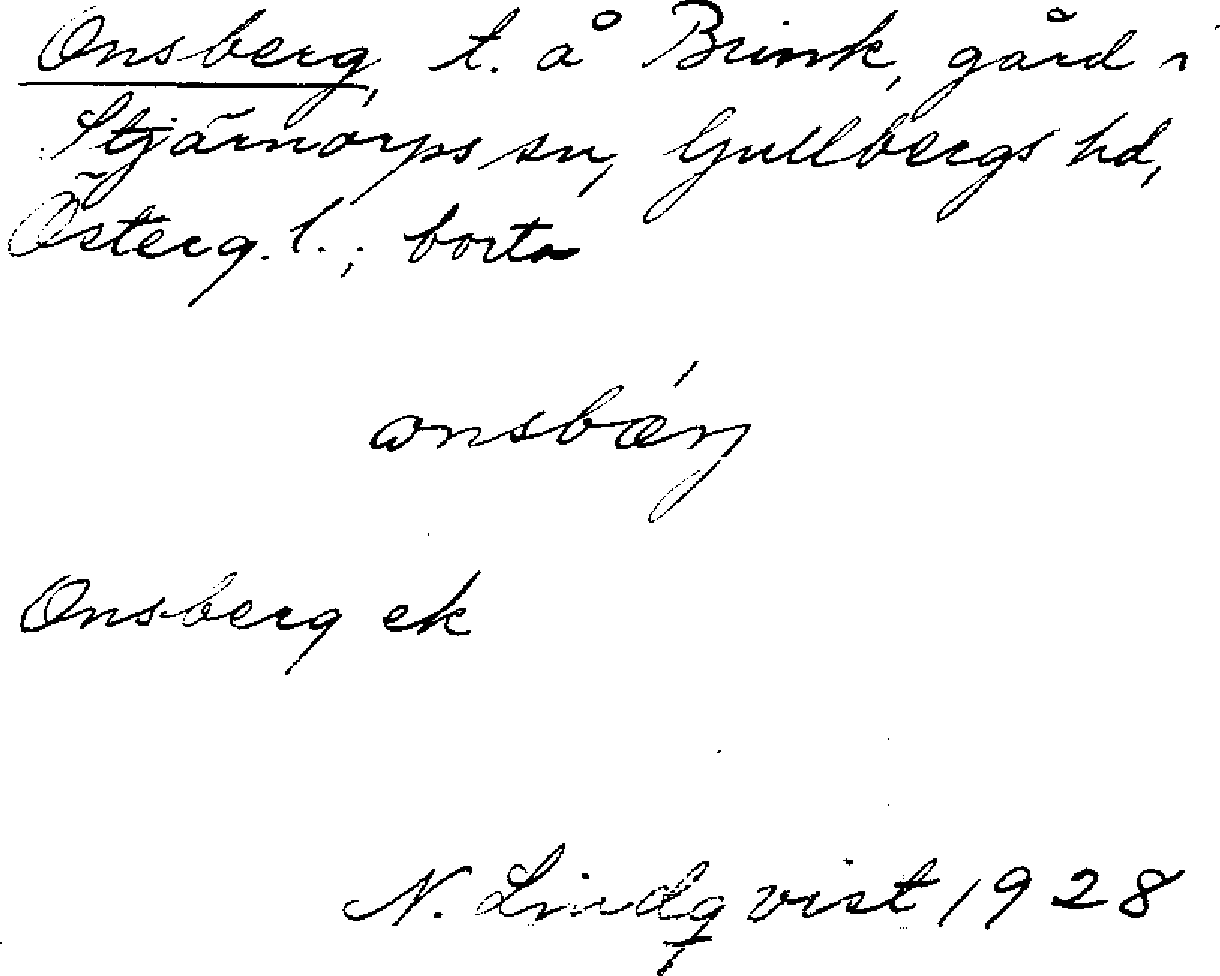 Onsberg, t. å Brink, gård i
Stjärnorps sn, Gullbergs hd,
Österg. l.; borta
ωnsbærj
Onsberg ek
N. Lindqvist 1928